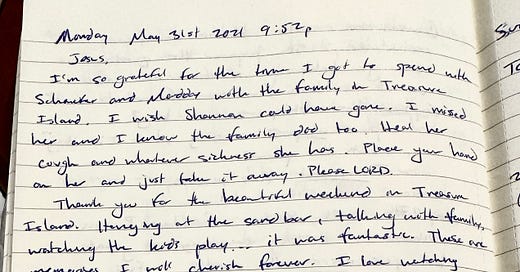 Monday May 31st 2021 9:52p
Jesus,
I'm so grateful for the time I got to spend with
and with the family in Treasure
Island. I wish Shannon could have gone. I missed
her and I know the family did too. Heal her
cough and whatever sickness she has. Place your hand
on her and just take it away. Please LORD.
Thank you for the beautiful weekend in Treasure
Island. Hanging at the sand bar, talking with family,
watching the kids play... it was fantastic. These are
memories I will cherish forever. I love watching